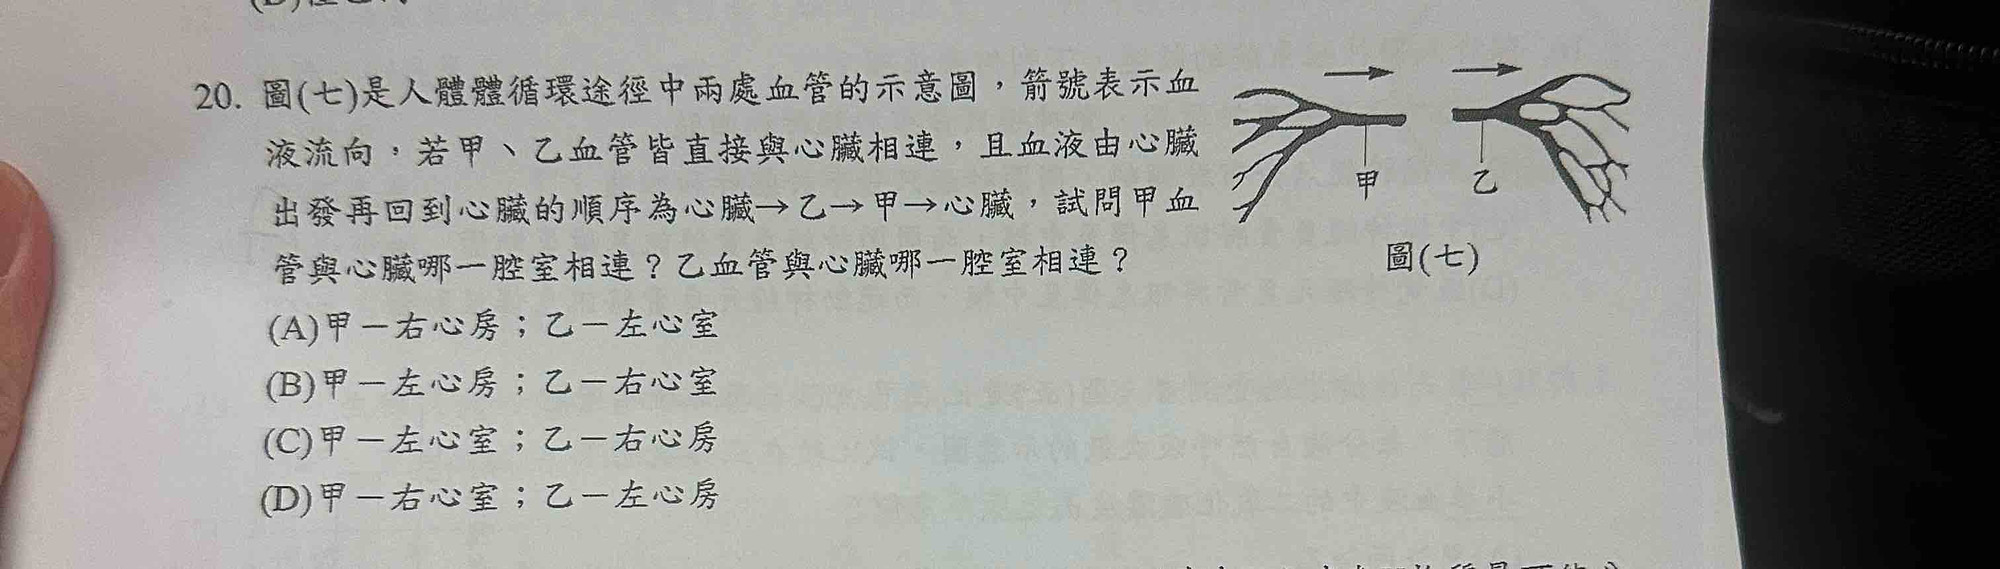 20. 圖(七)是人體體循環途徑中兩處血管的示意圖，箭號表示血
液流向，若甲、乙血管皆直接與心臟相連，且血液由心臟
出發再回到心臟的順序為心臟→乙→甲→心臟，試問甲血
管與心臟哪一腔室相連？乙血管與心臟哪一腔室相連？
甲
乙
圖(七)
(A)甲－右心房；乙－左心室
(B)甲－左心房；乙－右心室
(C)甲－左心室；乙－右心房
(D)甲－右心室；乙－左心房